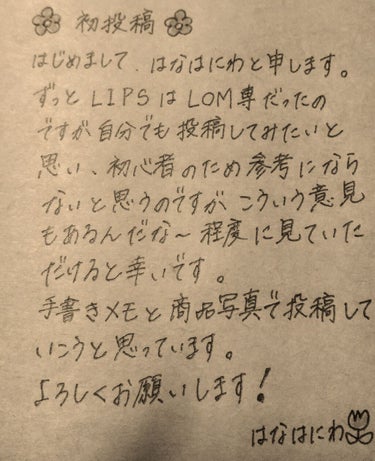 初投稿
はじめまして、はなはにわと申します。
ずっとLIPSはLOM専だったの
ですが自分でも投稿してみたいと
思い、初心者のため参考になら
ないと思うのですがこういう意見
もあるんだな〜程度に見ていた
だけると幸いです。
手書きメモと商品写真で投稿して
いこうと思っています。
よろしくお願いします!
はなはにわ